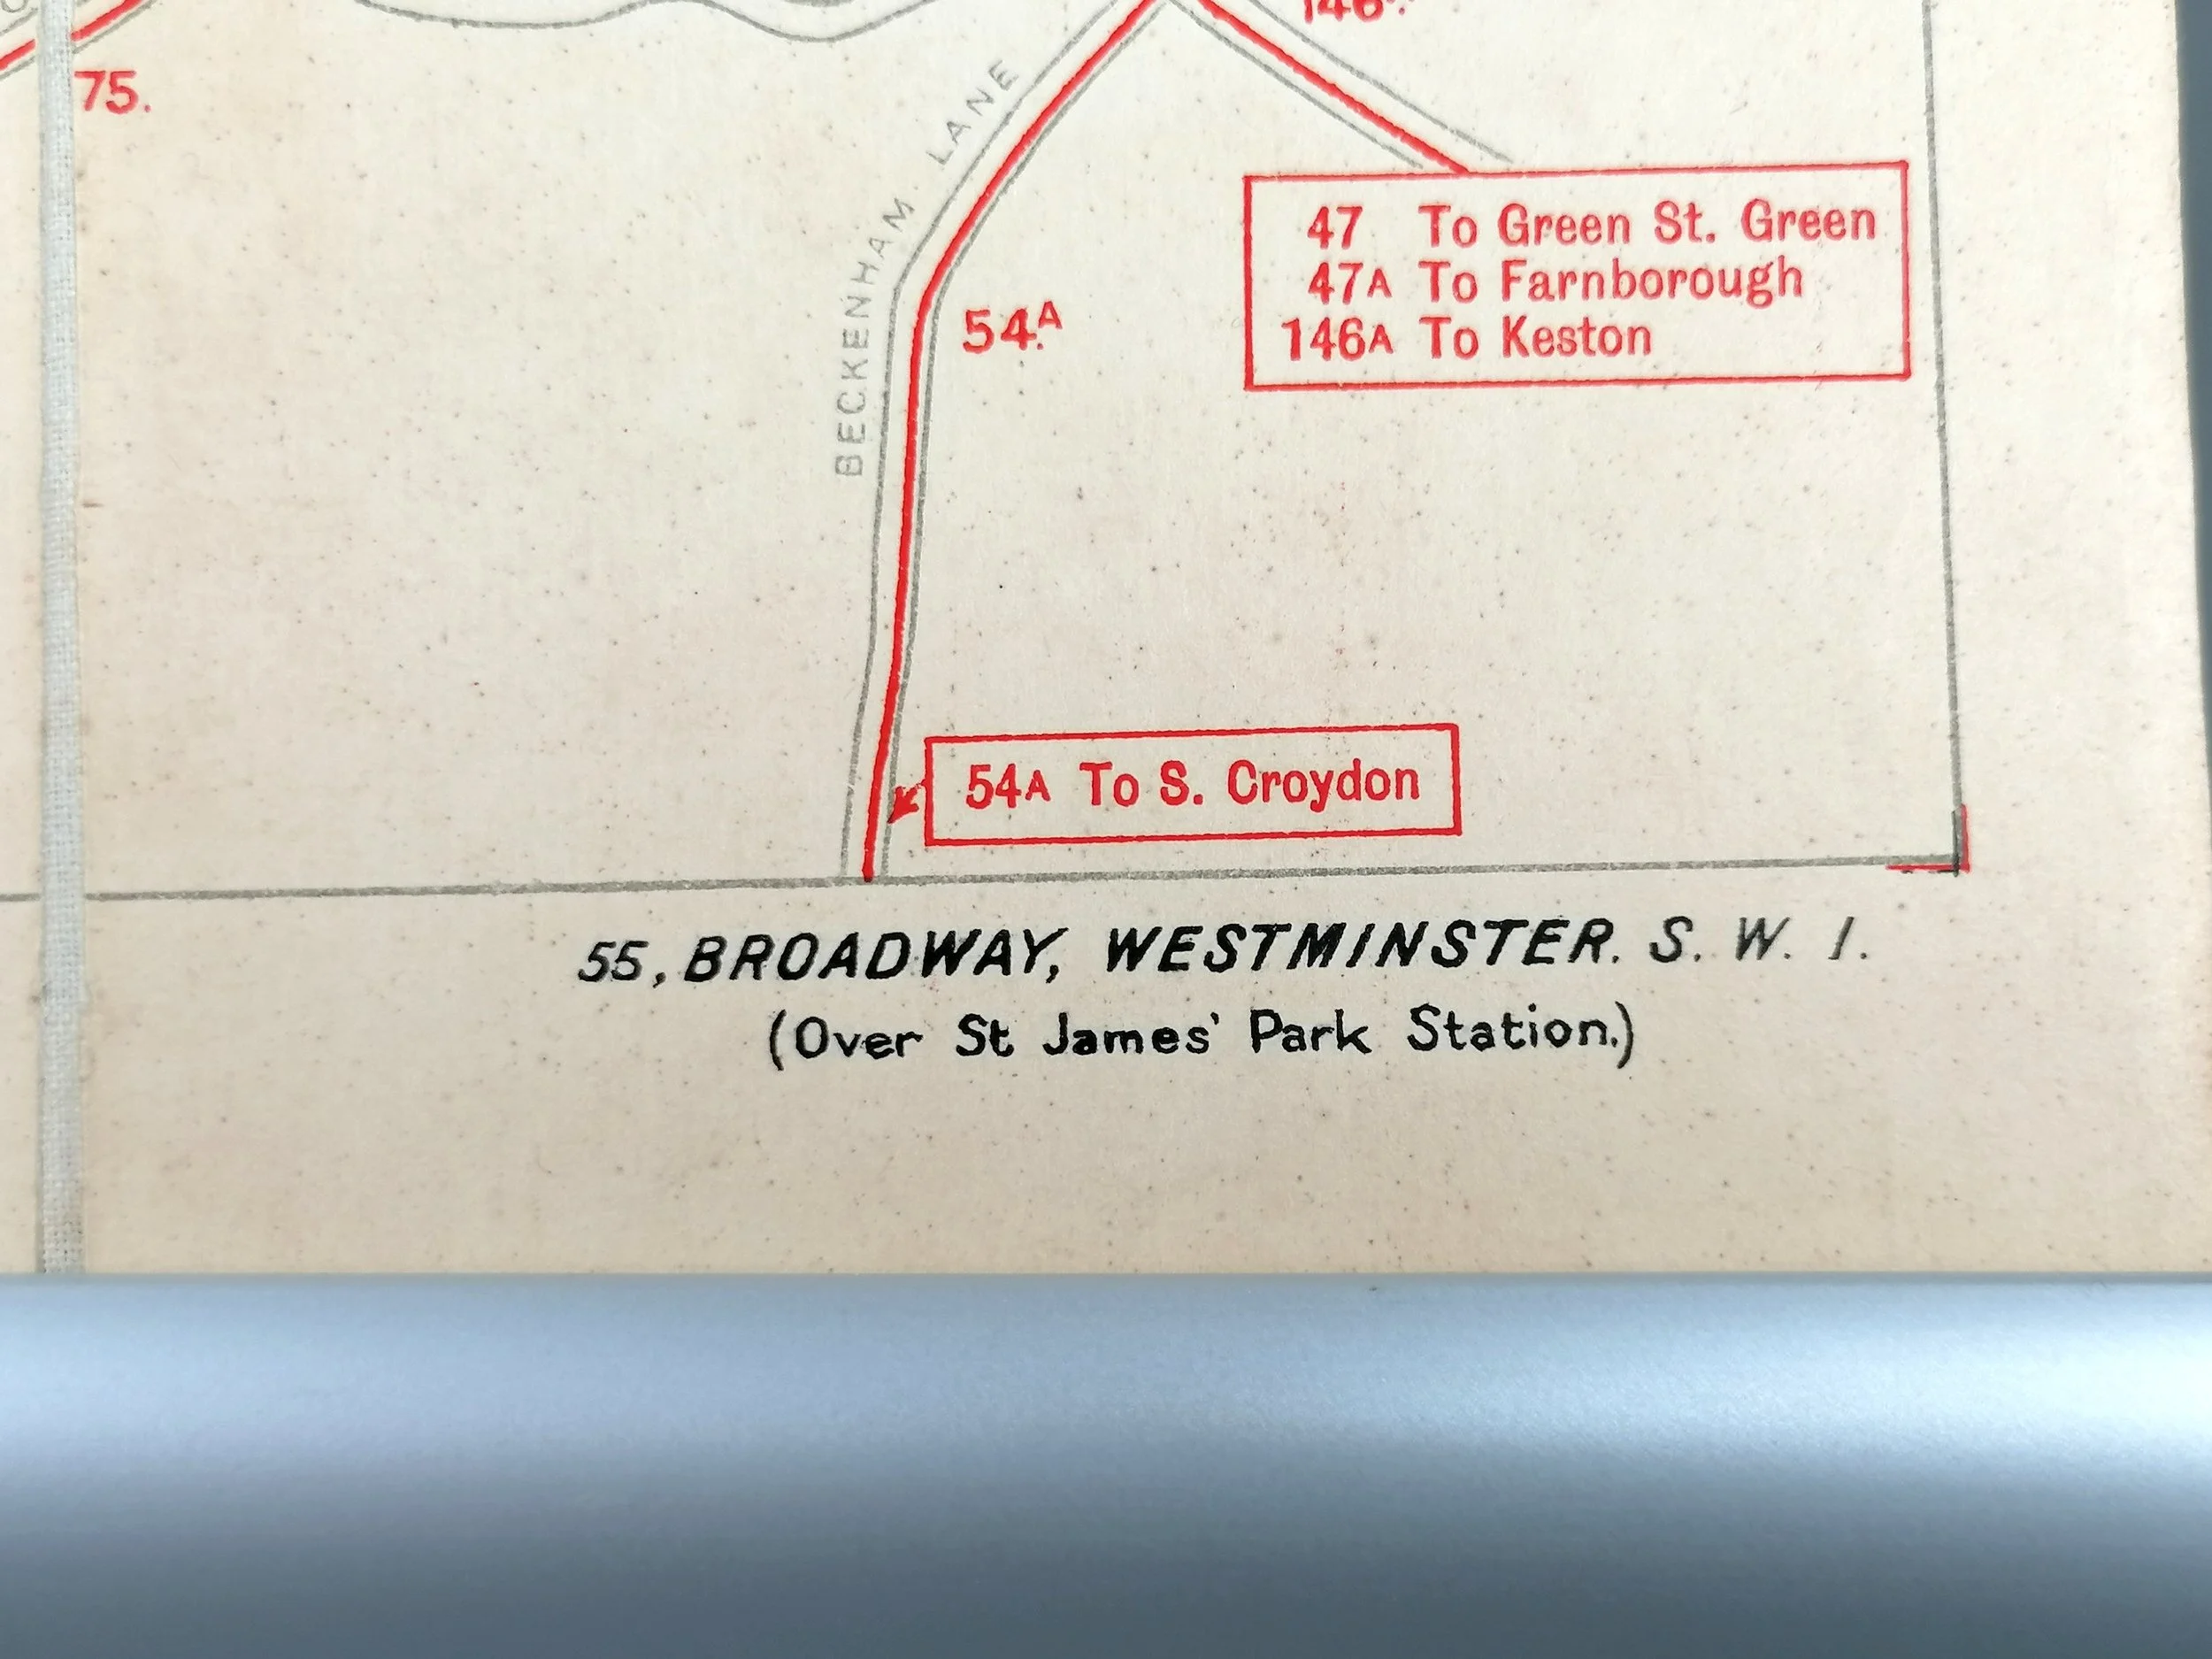 146A
75.
BECKENHAM LANE
54.A
47 To Green St. Green
47A To Farnborough
146A To Keston
54A To S. Croydon
55, BROADWAY, WESTMINSTER. S. W. 1.
(Over St James' Park Station.)